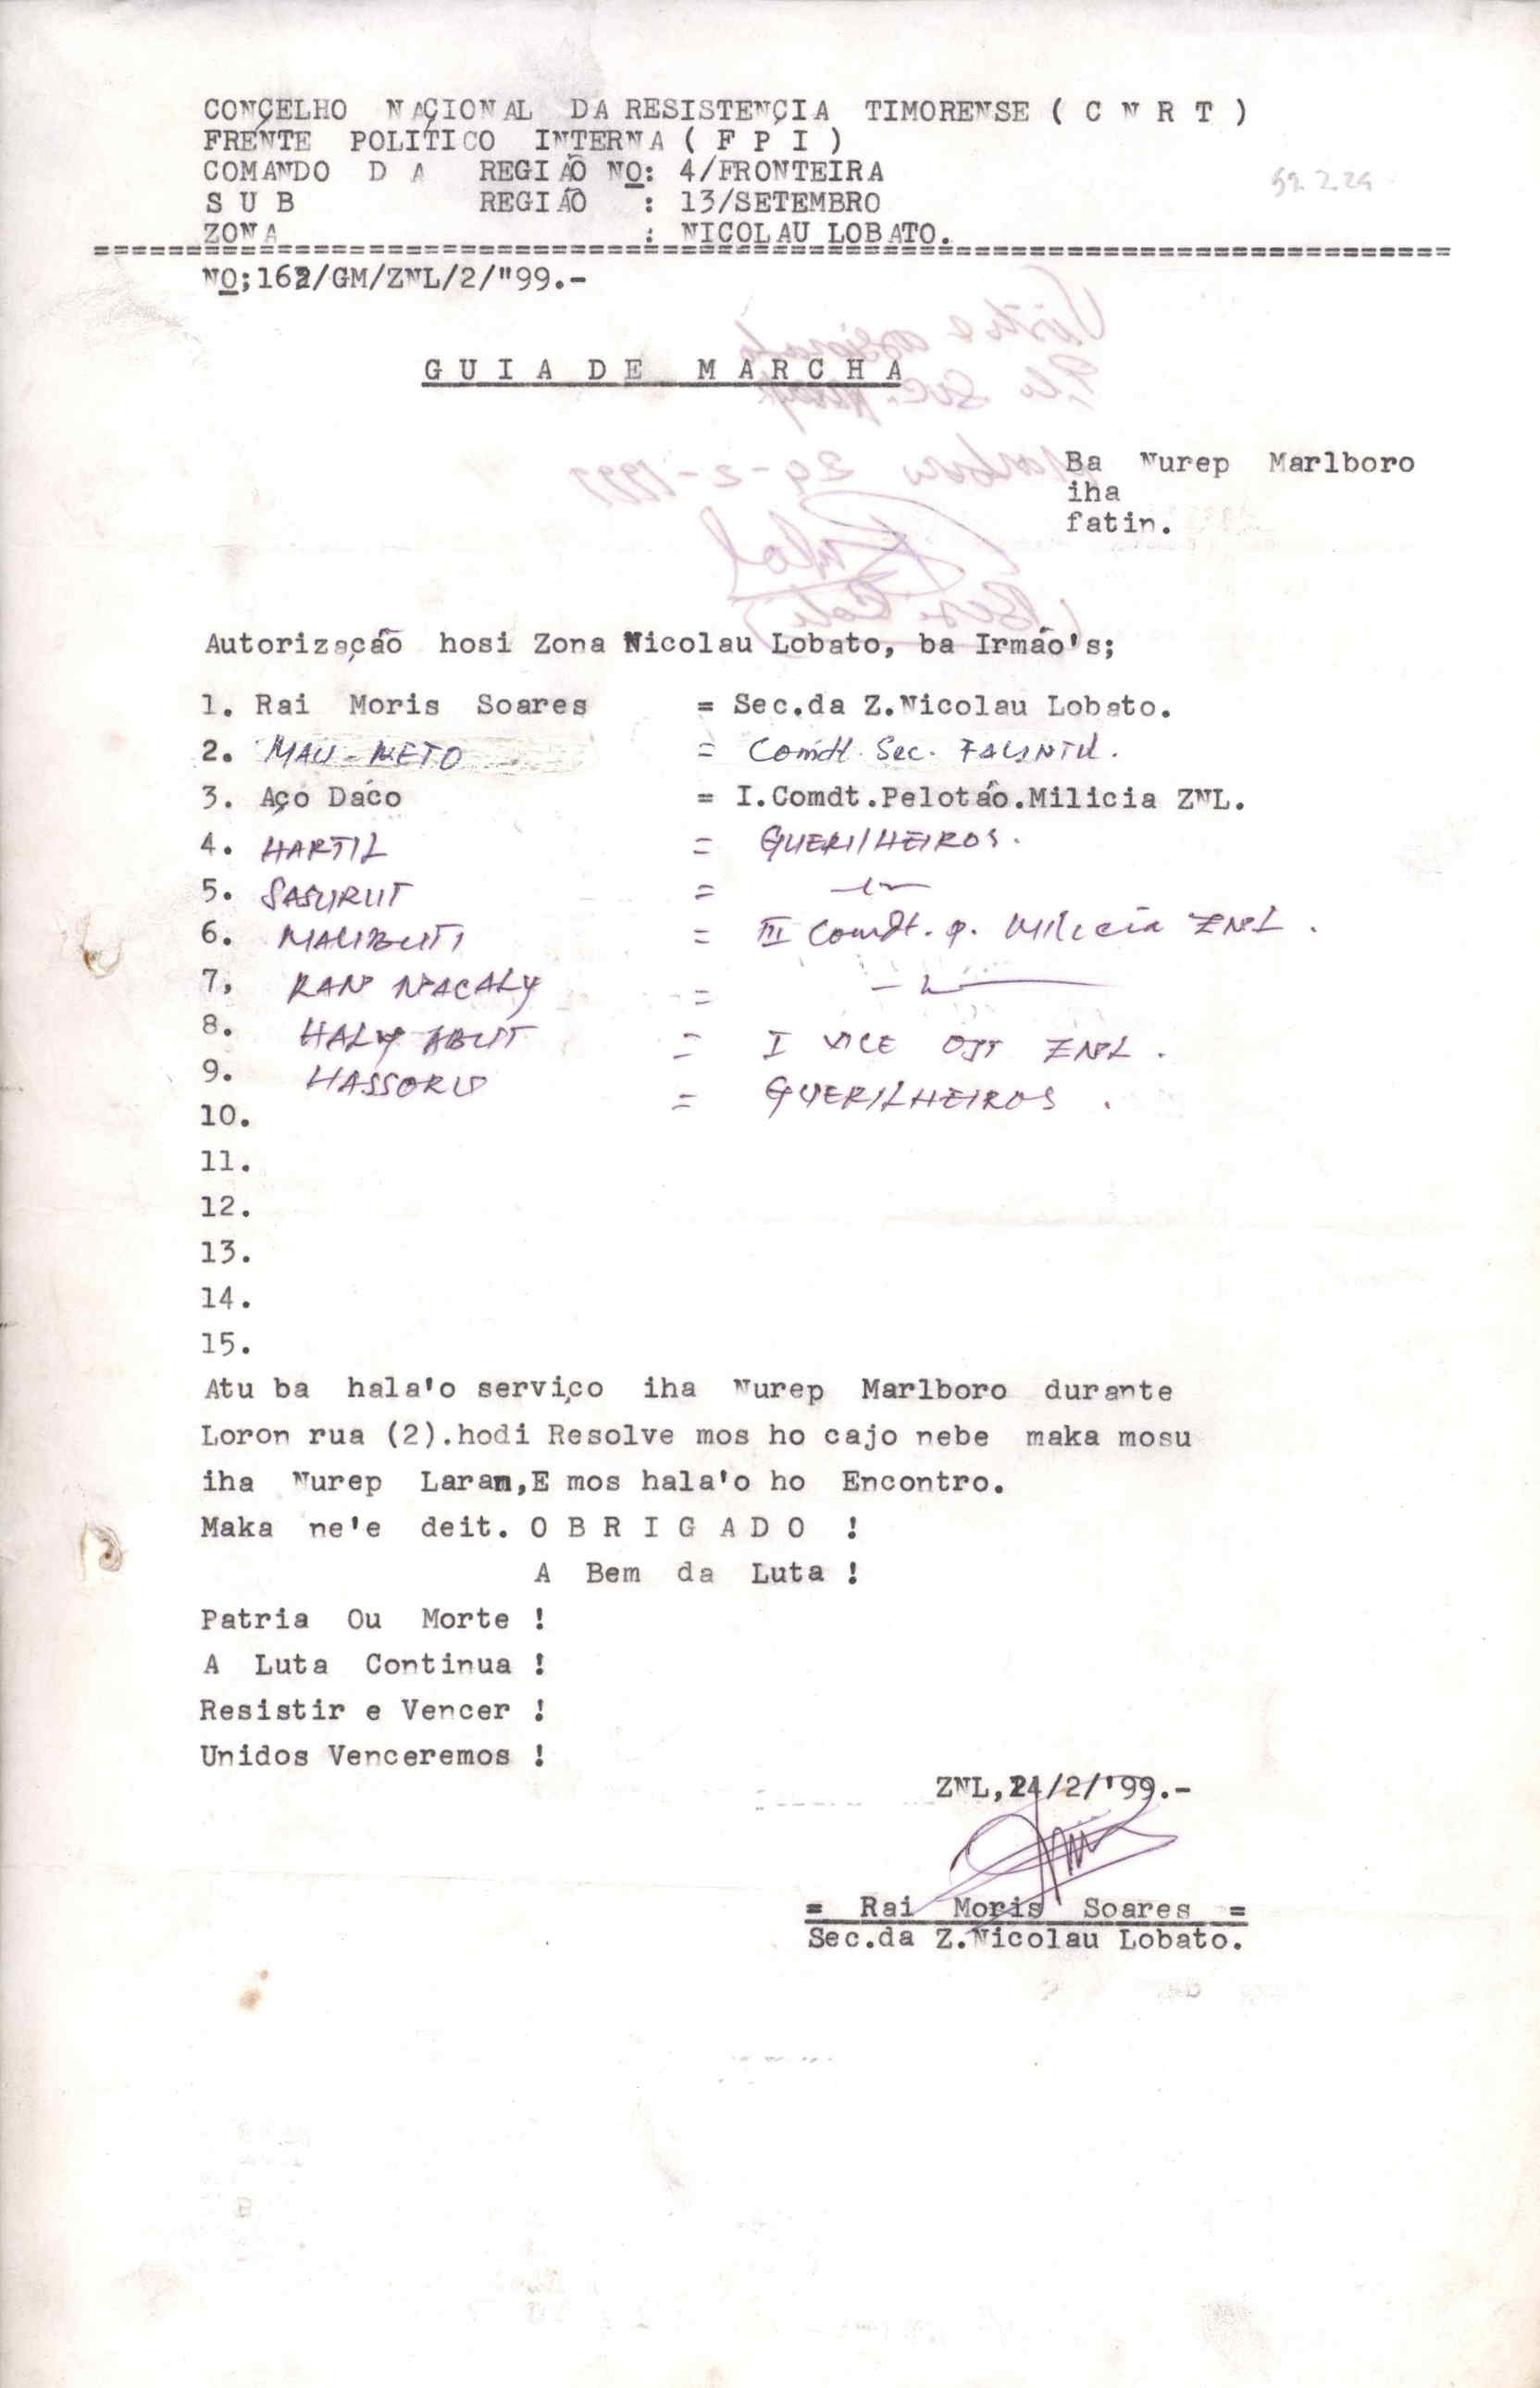 CONÇELHO NAÇIONAL DA RESISTENÇIA TIMORENSE ( C N R T )
FRENTE POLITICO INTERNA ( F P I )
COMANDO D A REGIÃO NO: 4/FRONTEIRA
S U B REGIÃO : 13/SETEMBRO
59.2.24
ZONA : NICOLAU LOBATO.
NO;162/GM/ZNL/2/"99.-
G U I A D E M A R C H A
Ba Nurep Marlboro
iha
fatin.
Autorização hosi Zona Nicolau Lobato, ba Irmão's;
1. Rai Moris Soares = Sec.da Z.Nicolau Lobato.
2. MAU-METO = Comdt. Sec. FALINTIL.
3. Aço Daco = I.Comdt.Pelotão.Milicia ZNL.
4. HARTIL = GUERILHEIROS.
5. SASURUT =
6. MAUBUTI = III Comdt. p. Milicia ZNL.
7. RAN NACALY =
8. HALY ABUT = I VICE OJT ZNL.
9. HASSORU = GUERILHEIROS.
10.
11.
12.
13.
14.
15.
Atu ba hala'o serviço iha Nurep Marlboro durante
Loron rua (2).hodi Resolve mos ho cajo nebe maka mosu
iha Nurep Laran,E mos hala'o ho Encontro.
Maka ne'e deit. O B R I G A D O !
A Bem da Luta !
Patria Ou Morte !
A Luta Continua !
Resistir e Vencer !
Unidos Venceremos !
ZNL,24/2/'99.-
= Rai Moris Soares =
Sec.da Z.Nicolau Lobato.